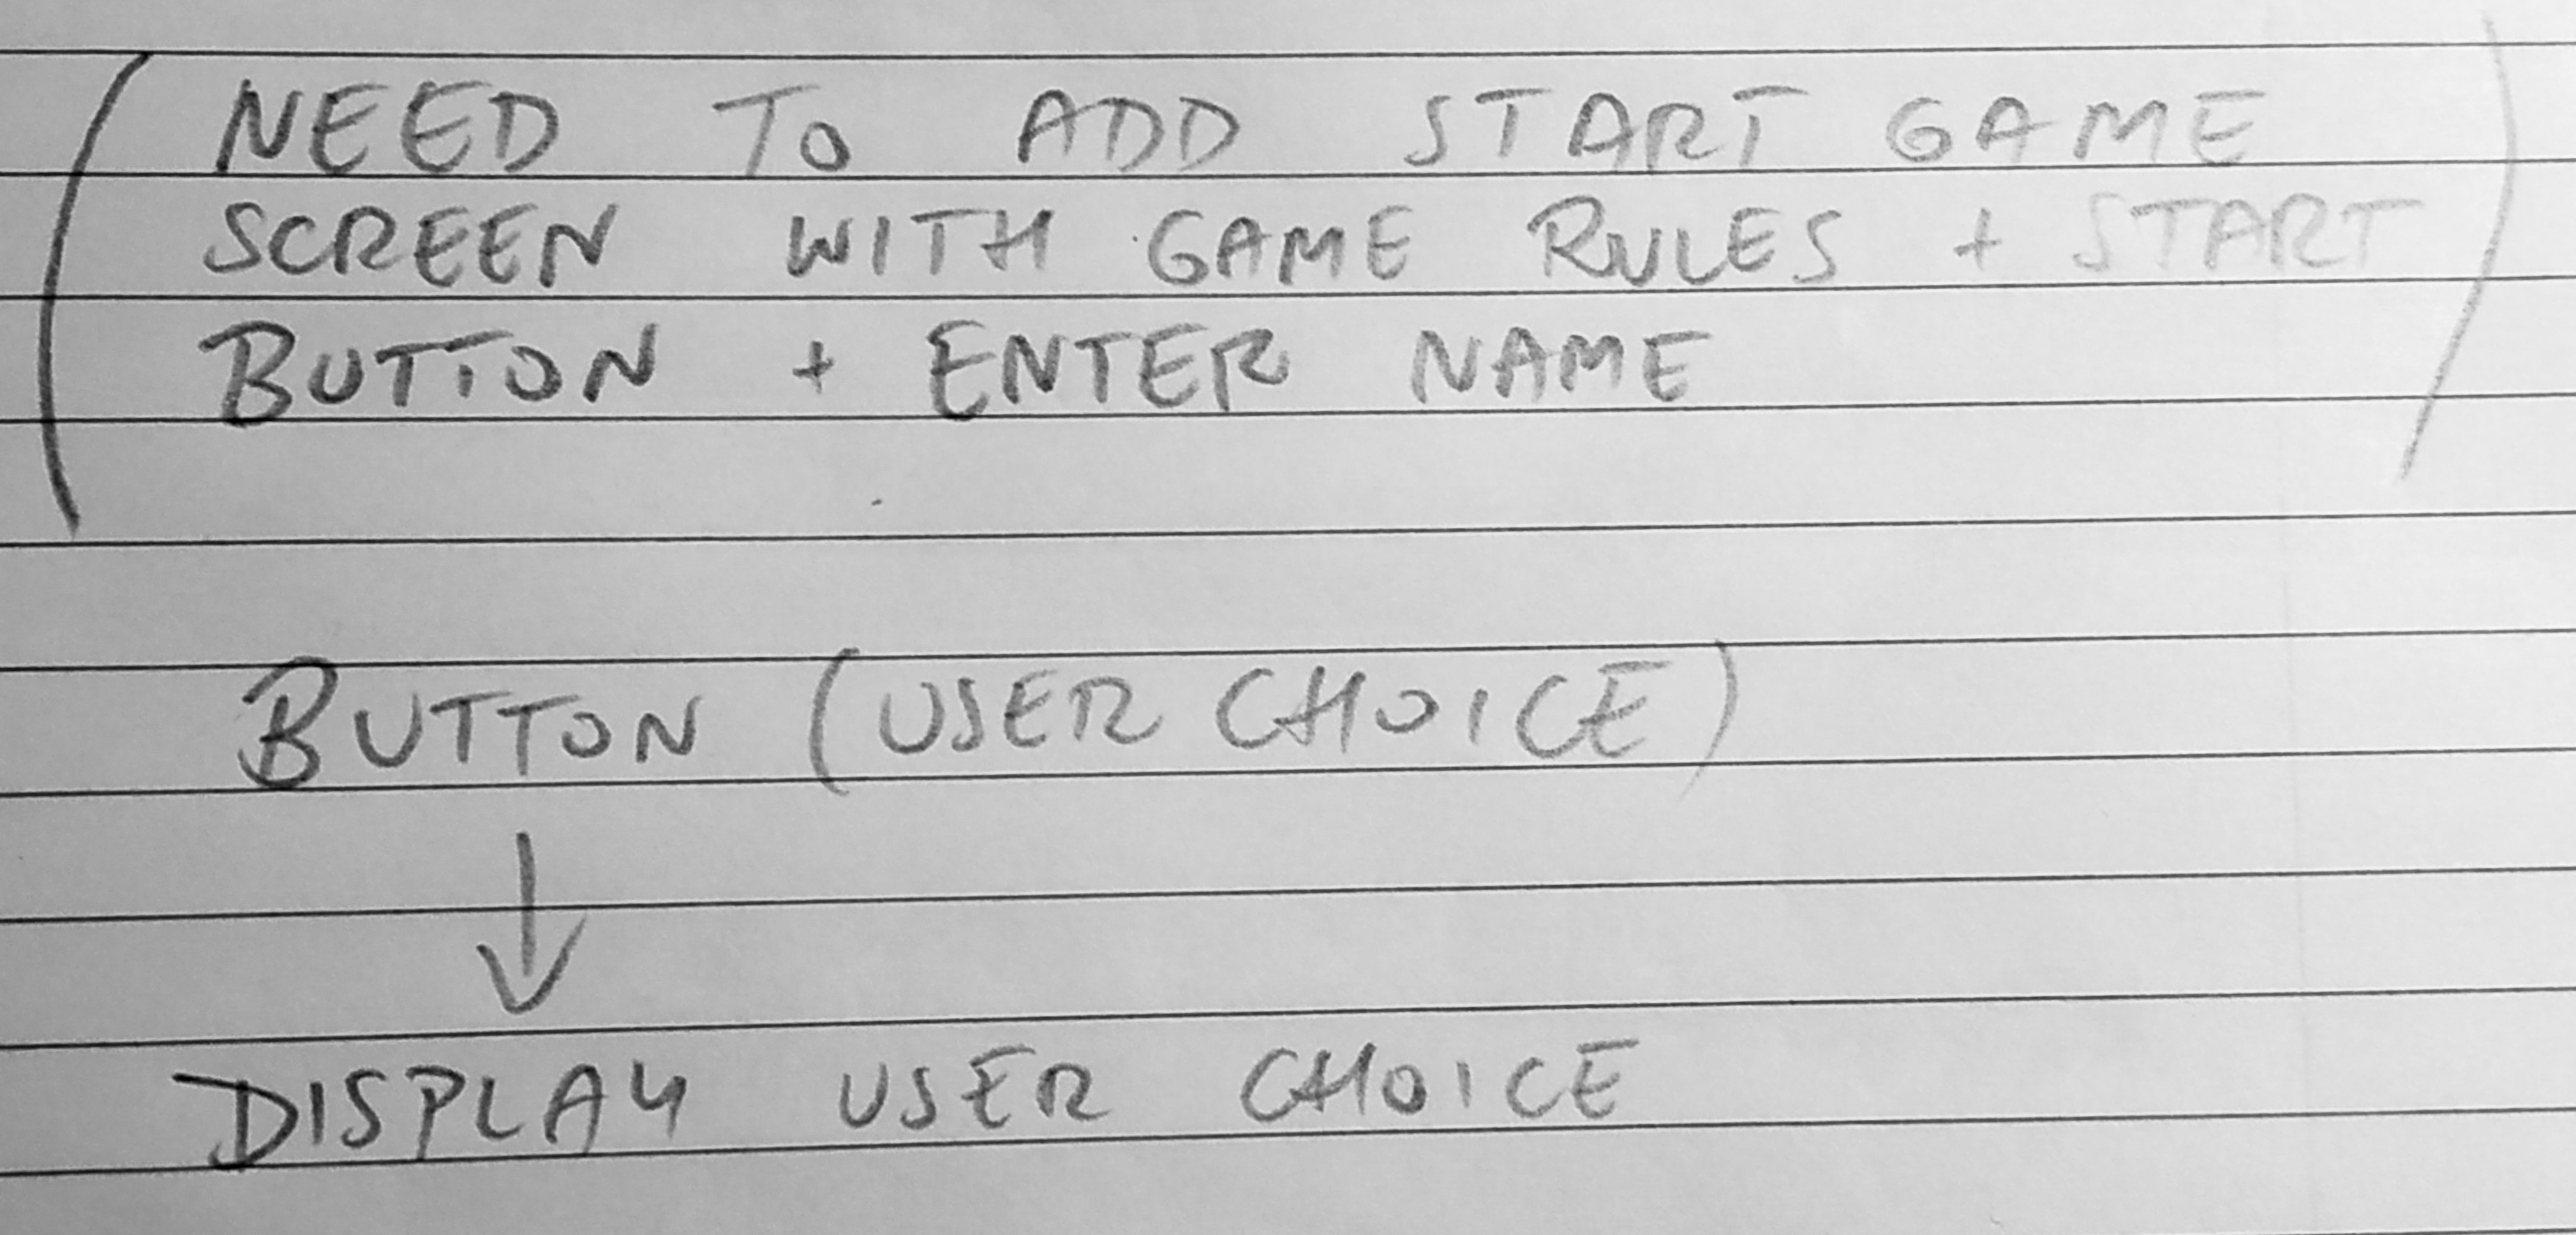 (NEED TO ADD START GAME
SCREEN WITH GAME RULES + START
BUTTON + ENTER NAME)
BUTTON (USER CHOICE)
↓
DISPLAY USER CHOICE